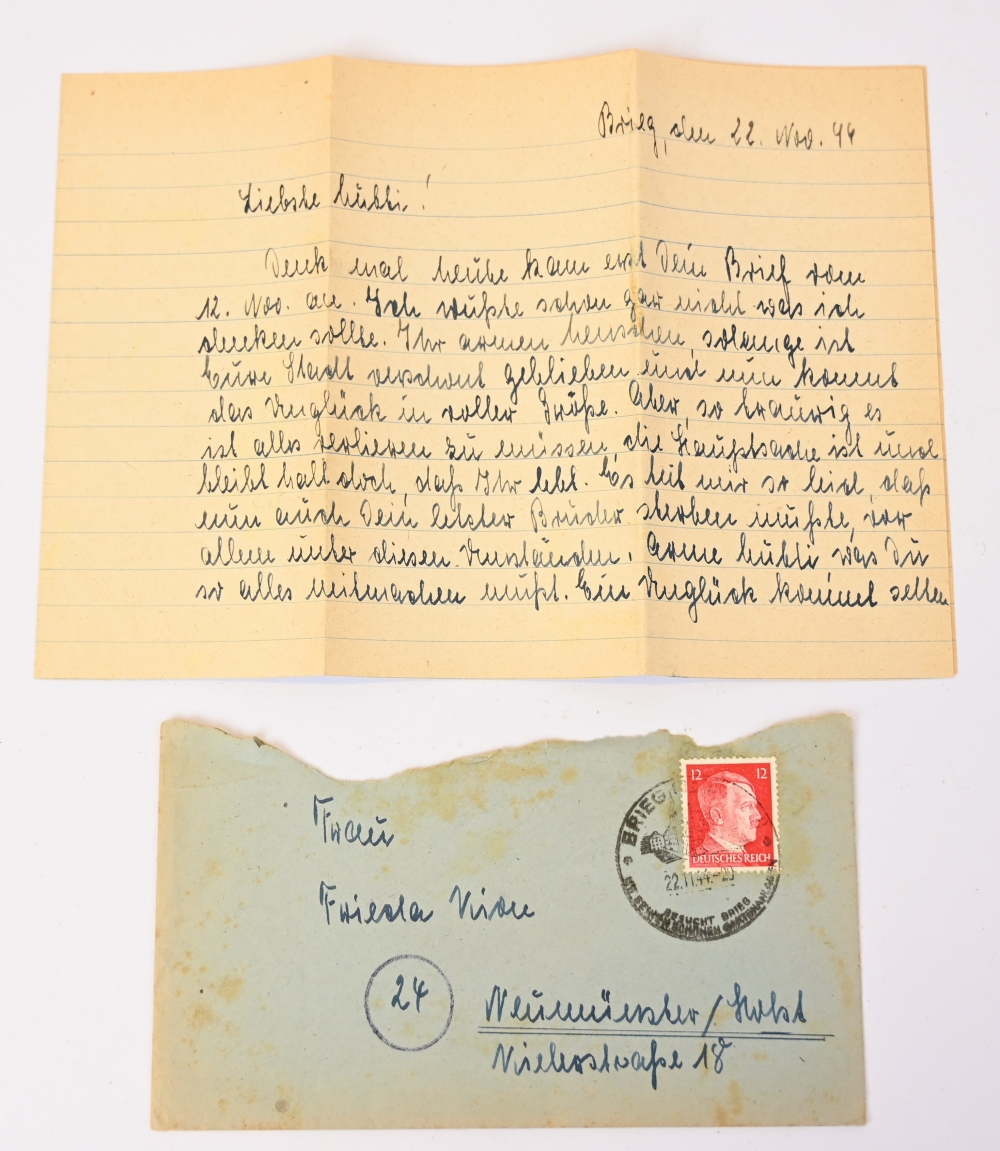 Brieg, den 22. Nov. 44
Liebste Mutti!
Denk mal heute kam erst Dein Brief vom
12. Nov. an. Ich wußte schon gar nicht was ich
denken sollte. Ihr armen Menschen, solange ist
Eure Stadt verschont geblieben und nun kommt
das Unglück in voller Größe. Aber, so traurig es
ist alles verlieren zu müssen, die Hauptsache ist und
bleibt halt doch, daß Ihr lebt. Es tut mir so leid, daß
nun auch Dein letzter Bruder sterben mußte, vor
allem unter diesen Umständen. Arme Mutti was Du
so alles mitmachen mußt. Ein Unglück kommt selten
12 12
DEUTSCHES REICH
BRIEG
22.11.44.-20
BESUCHT BRIEG
MIT SEINEN SCHÖNEN GARTENANLAGEN
Frau
Frieda
24
Neumünster/Holst
18